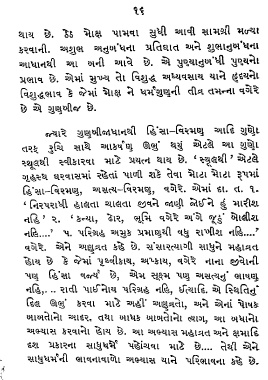 ૧૬
થાય છે. ઠેઠ મોક્ષ પામવા સુધી આવી સામગ્રી મળ્યા
કરવાની. અશુભ અનુબંધના પ્રતિઘાત અને શુભાનુબંધના
આધાનથી આ બની આવે છે. એ પુણ્યાનુબંધી પુણ્યનો
પ્રભાવ છે. એમાં મુખ્ય તો વિશુદ્ધ અધ્યવસાય યાને હૃદયનો
વિશુદ્ધભાવ કે જેમાં મોક્ષ ને ધર્મગુણની તીવ્ર તમન્ના વગેરે
છે એ ગુણબીજ છે.
જ્યારે ગુણબીજાધાનથી હિંસા-વિરમણ આદિ ગુણો
તરફ રુચિ સાથે આકર્ષણ ઊભું થયું એટલે આ ગુણો
સ્થૂલથી સ્વીકારવા માટે પ્રયત્ન થાય છે. 'સ્થૂલથી' એટલે
ગૃહસ્થ ઘરવાસમાં રહેતાં પાળી શકે તેવા મોટા મોટા રૂપમાં
હિંસા-વિરમણ, અસત્ય-વિરમણ, વગેરે. એમાં દા. ત. ૧.
'નિરપરાધી હાલતા ચાલતા જીવને જાણી જોઈને હું મારીશ
નહિ' ૨. 'કન્યા, ઢોર, ભૂમિ વગેરે અંગે જૂઠું બોલીશ
નહિ....' ૫. પરિગ્રહ અમુક પ્રમાણથી વધુ રાખીશ નહિ....'
વગેરે. એને અણુવ્રત કહે છે. સંસારત્યાગી સાધુને મહાવ્રત
હોય છે કે જેમાં પૃથ્વીકાય, અપ્કાય, વગેરે નાના જીવોની
પણ હિંસા વર્જ્ય છે, એમ સૂક્ષ્મ પણ અસત્યનું ભાષણ
નહિ,... રાતી પાઈનોય પરિગ્રહ નહિ, ઈત્યાદિ. એ સ્થિતિનું
દિલ ઊભું કરવા માટે અહીં અણુવ્રતો, અને એનાં પોષક
બાબતોનો આદર, તથા બાધક બાબતોનો ત્યાગ, આ બધાનો
અભ્યાસ કરવાનો હોય છે. આ અભ્યાસ મહાવ્રત અને ક્ષમાદિ
દશ પ્રકારના સાધુધર્મે પહોંચવા માટે છે.... તેથી એને
સાધુધર્મની ભાવનાવાળો અભ્યાસ યાને પરિભાવના કહે છે.